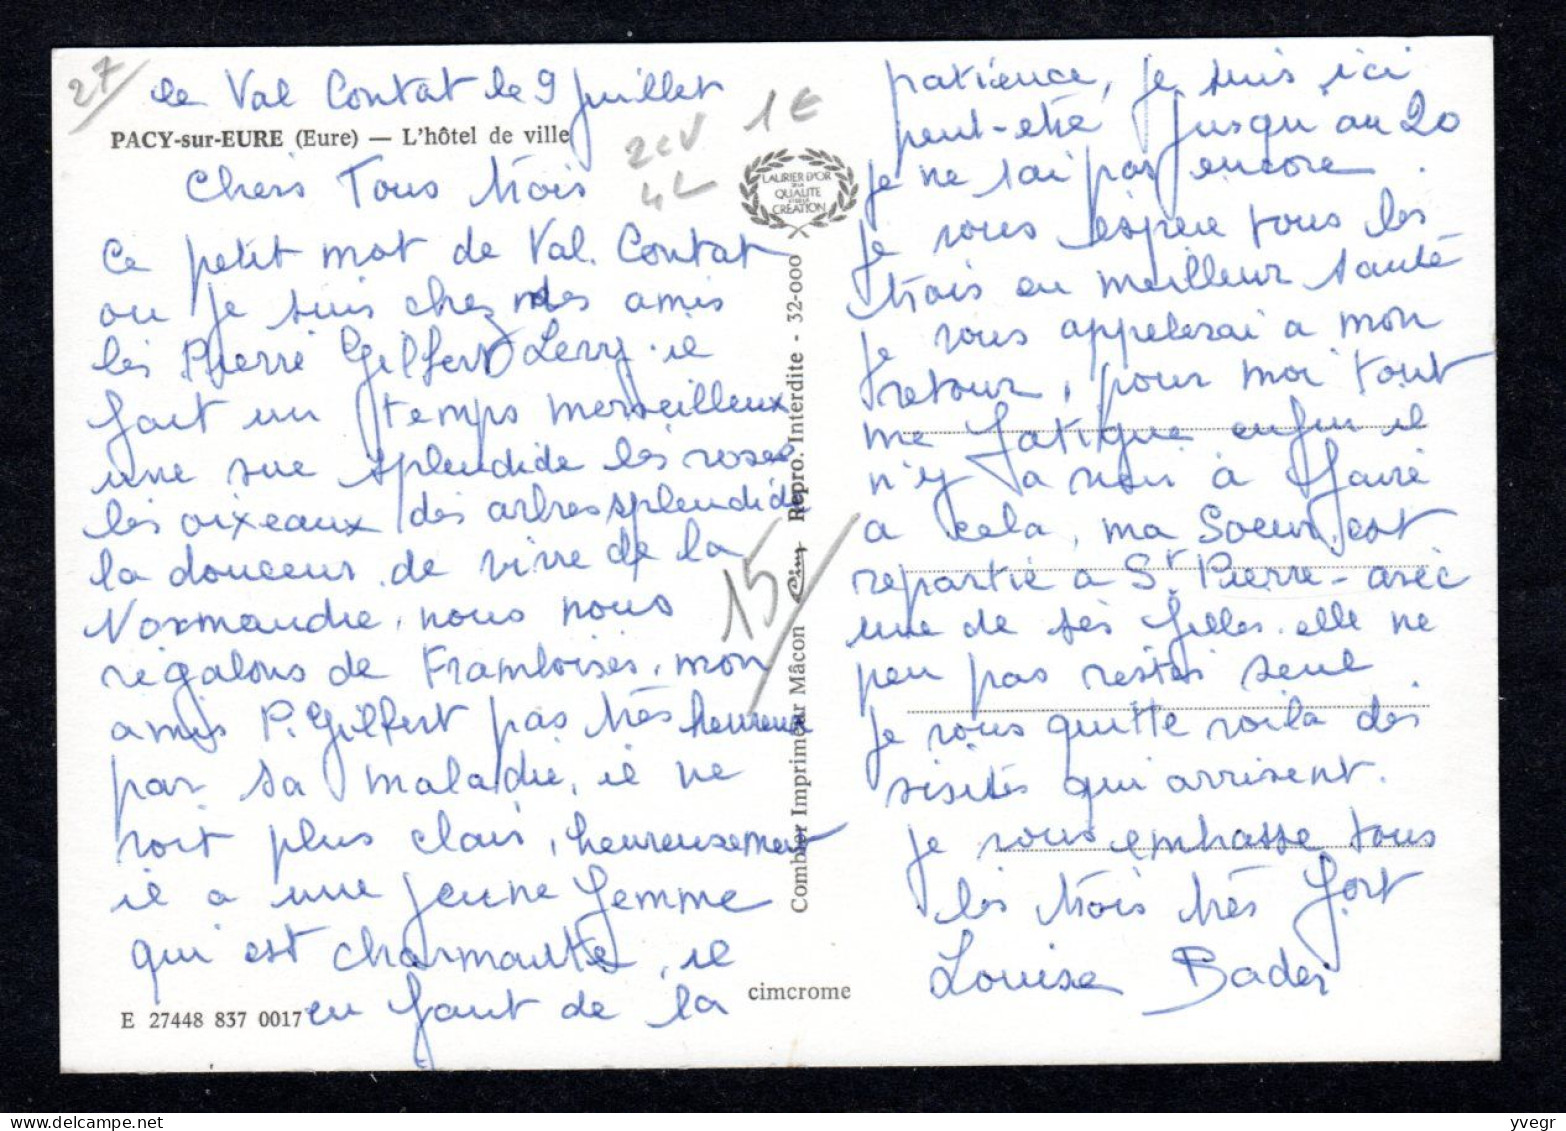 27
le Val Contat le 9 Juillet
PACY-sur-EURE (Eure) — L'hôtel de ville
2cv 1€
4L
LAURIER D'OR
DE LA
QUALITE
CRÉATION
Chers Tous trois
Ce petit mot de Val. Contat
ou je suis chez des amis
les Pierre Gilfert Levy. il
fait un temps merveilleux
une vue splendide les roses
les oixeaux des arbres splendides
la douceur de vivre de la
Normandie, nous nous
régalons de Framboises, mon
amis P. Gilfert pas très heureux
par sa maladie, il ne
voit plus clair, heureusement
il a une jeune femme
qui est charmante, il
en faut de la
E 27448 837 0017
15
Combier Imprimeur Mâcon Cim Repro. Interdite - 32-000
cimcrome
patience, je suis ici
peut-etre jusqu'au 20
je ne sai pas encore.
Je vous espere tous les
trois en meilleur santé
je vous appelerai a mon
retour, pour moi tout
me fatigue enfin il
n'y a rien à faire
a cela, ma Soeur est
repartie a St Pierre - avec
une de ses filles. elle ne
peu pas restes seul
je vous quitte voila des
visites qui arrivent.
je vous embrasse tous
les trois très fort
Louise Bader
yvegr